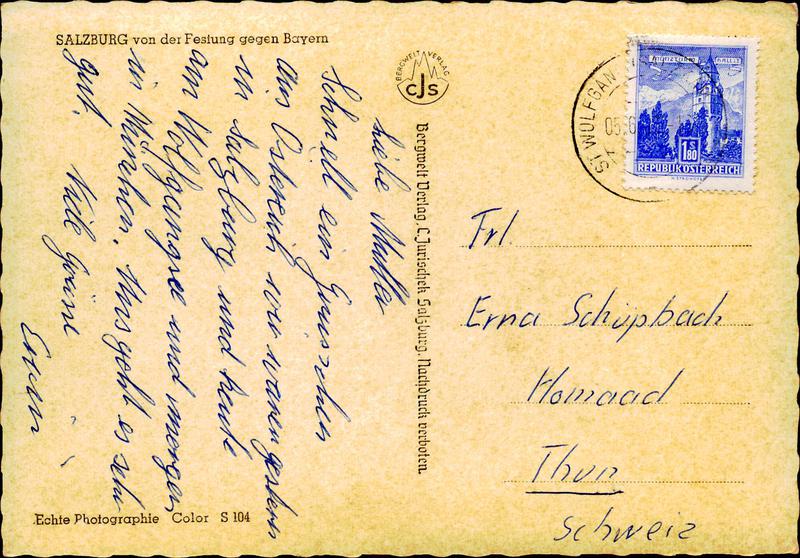 SALZBURG von der Festung gegen Bayern
BERGWELT VERLAG
CJS
Liebe Mutter
Schnell ein Grüsschen
aus Östereich wir waren gestern
in Salzburg und heute
am Wolfgangsee und morgen
in München. Uns geht es sehr
gut. Viele Grüsse
Erwin
Echte Photographie Color S 104
Bergwelt Verlag, C. Jurischek Salzburg. Nachdruck verboten.
ST. WOLFGAN
MÜNZTURM HALL i. T.
1.80
S
REPUBLIK ÖSTERREICH
Frl.
Erna Schüpbach
Homaad
Thun
Schweiz